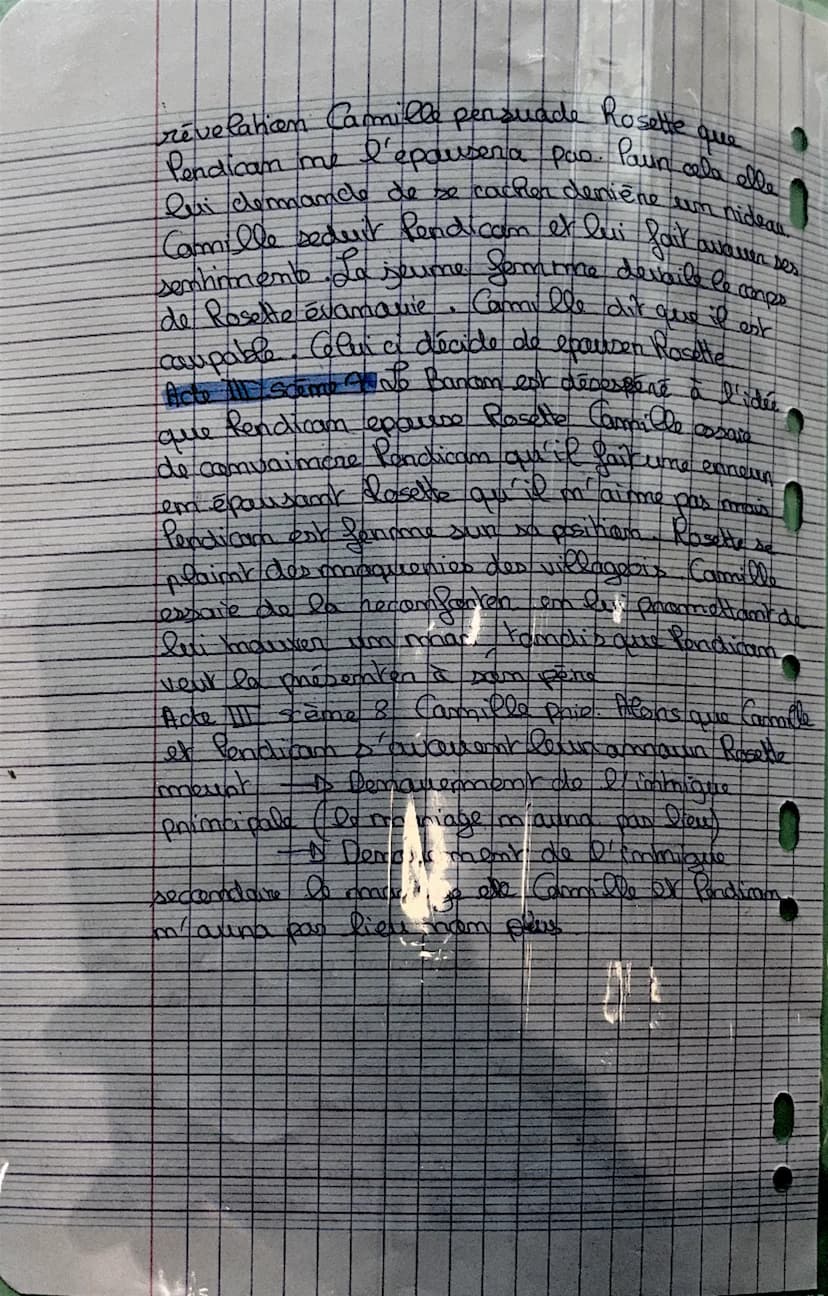 révelation Camille persuade Rosette que
Perdican ne l'épousera pas. Pour cela elle
lui demande de se cacher derière un rideau.
Camille seduit Perdican et lui fait avouer ses
sentiments. La jeune femme devoile le corps
de Rosette évanouie. Camille dit que il est
coupable. Celui ci décide de epouser Rosette
Acte III scène 7 Le Baron est déséspéré à l'idée
que Perdican epouse Rosette Camille essaie
de convaincre Perdican qu'il fait une erreur
en épousant Rosette qu'il n'aime pas mais
Perdican est ferme sur sa position. Rosette se
plaint des moqueries des villageois Camille
essaie de la reconforter en lui promettant de
lui trouver un mari, tandis que Perdican
veut la présenter à son père
Acte III scène 8 Camille prie. Alors que Camille
et Perdican s'avouent leur amour Rosette
meurt → Denouement de l'intrigue
principale (le mariage n'aura pas lieu)
→ Denouement de l'intrigue
secondaire le mariage de Camille et Perdican
n'aura pas lieu non plus